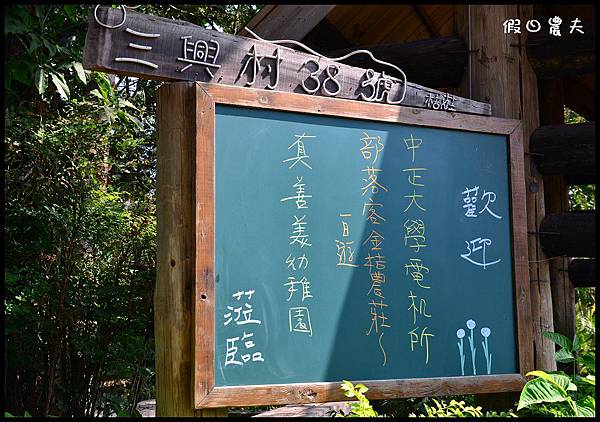 假日農夫
三興村38號
歡迎
中正大學電机所
部落客金桔農莊~
一日遊
真善美幼稚園
蒞臨